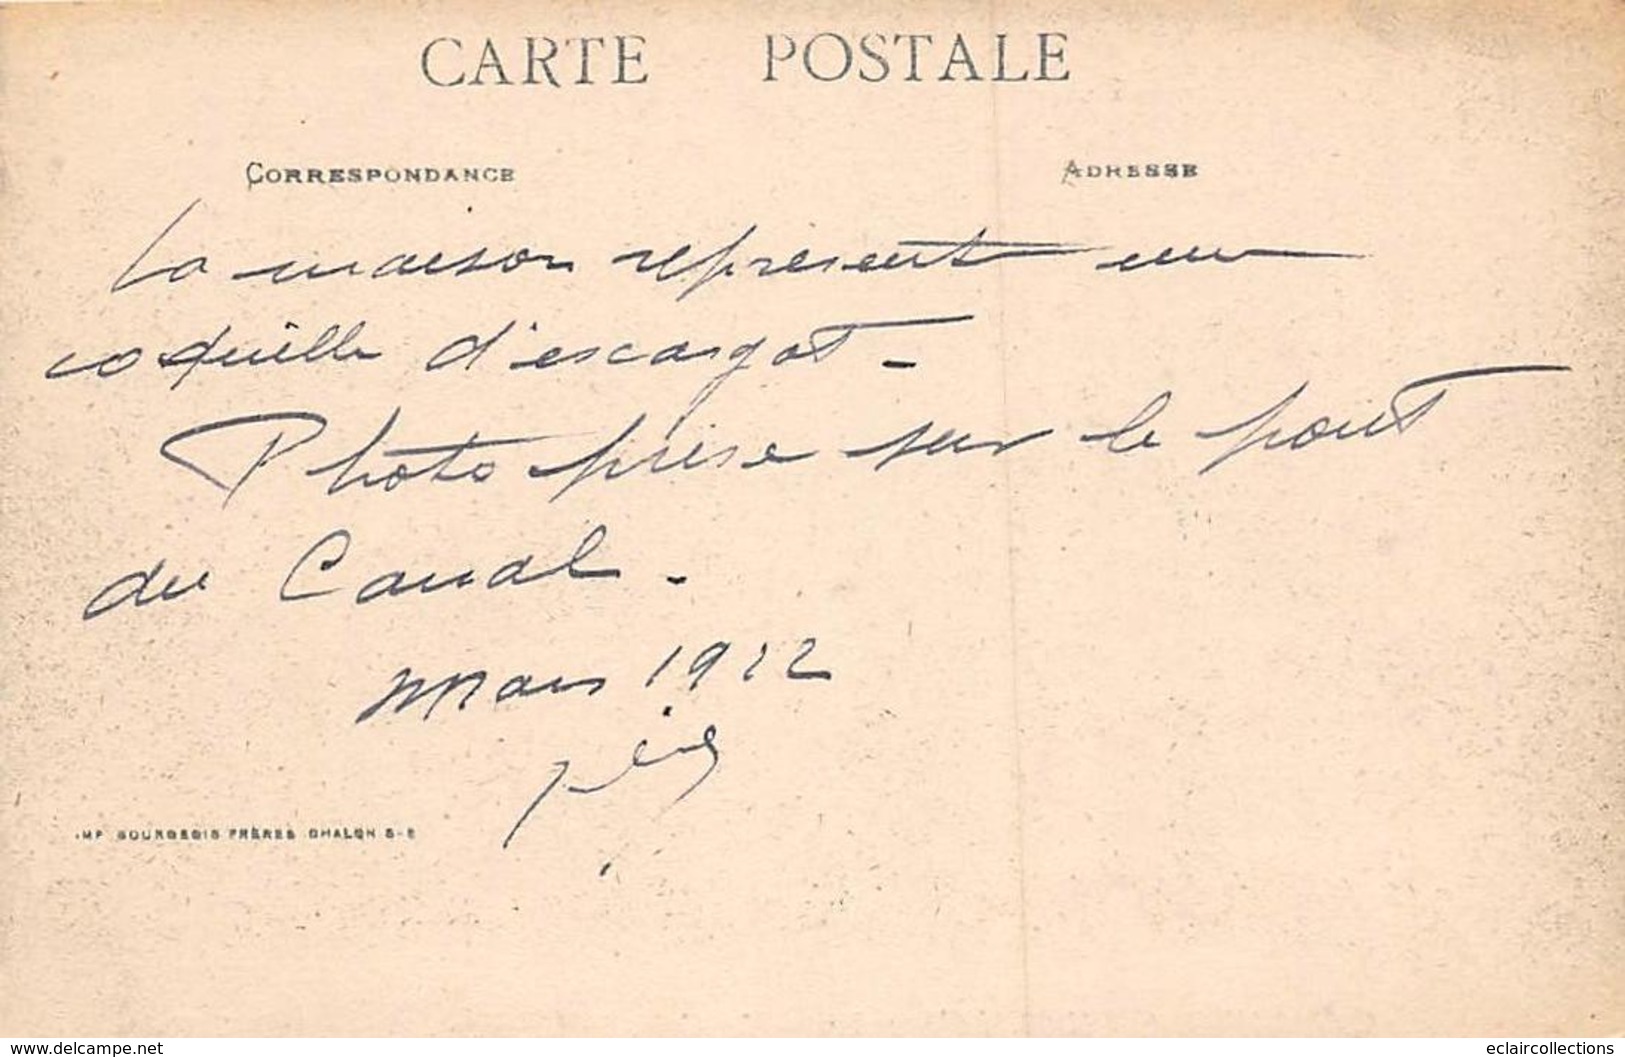 CARTE POSTALE
CORRESPONDANCE
ADRESSE
La maison représent une
coquille d'escargot -
Photo prise sur le pont
du Canal -
Mars 1912
IMP BOURGEOIS FRÈRES CHALON S-S
delcampe.net
eclaircollections